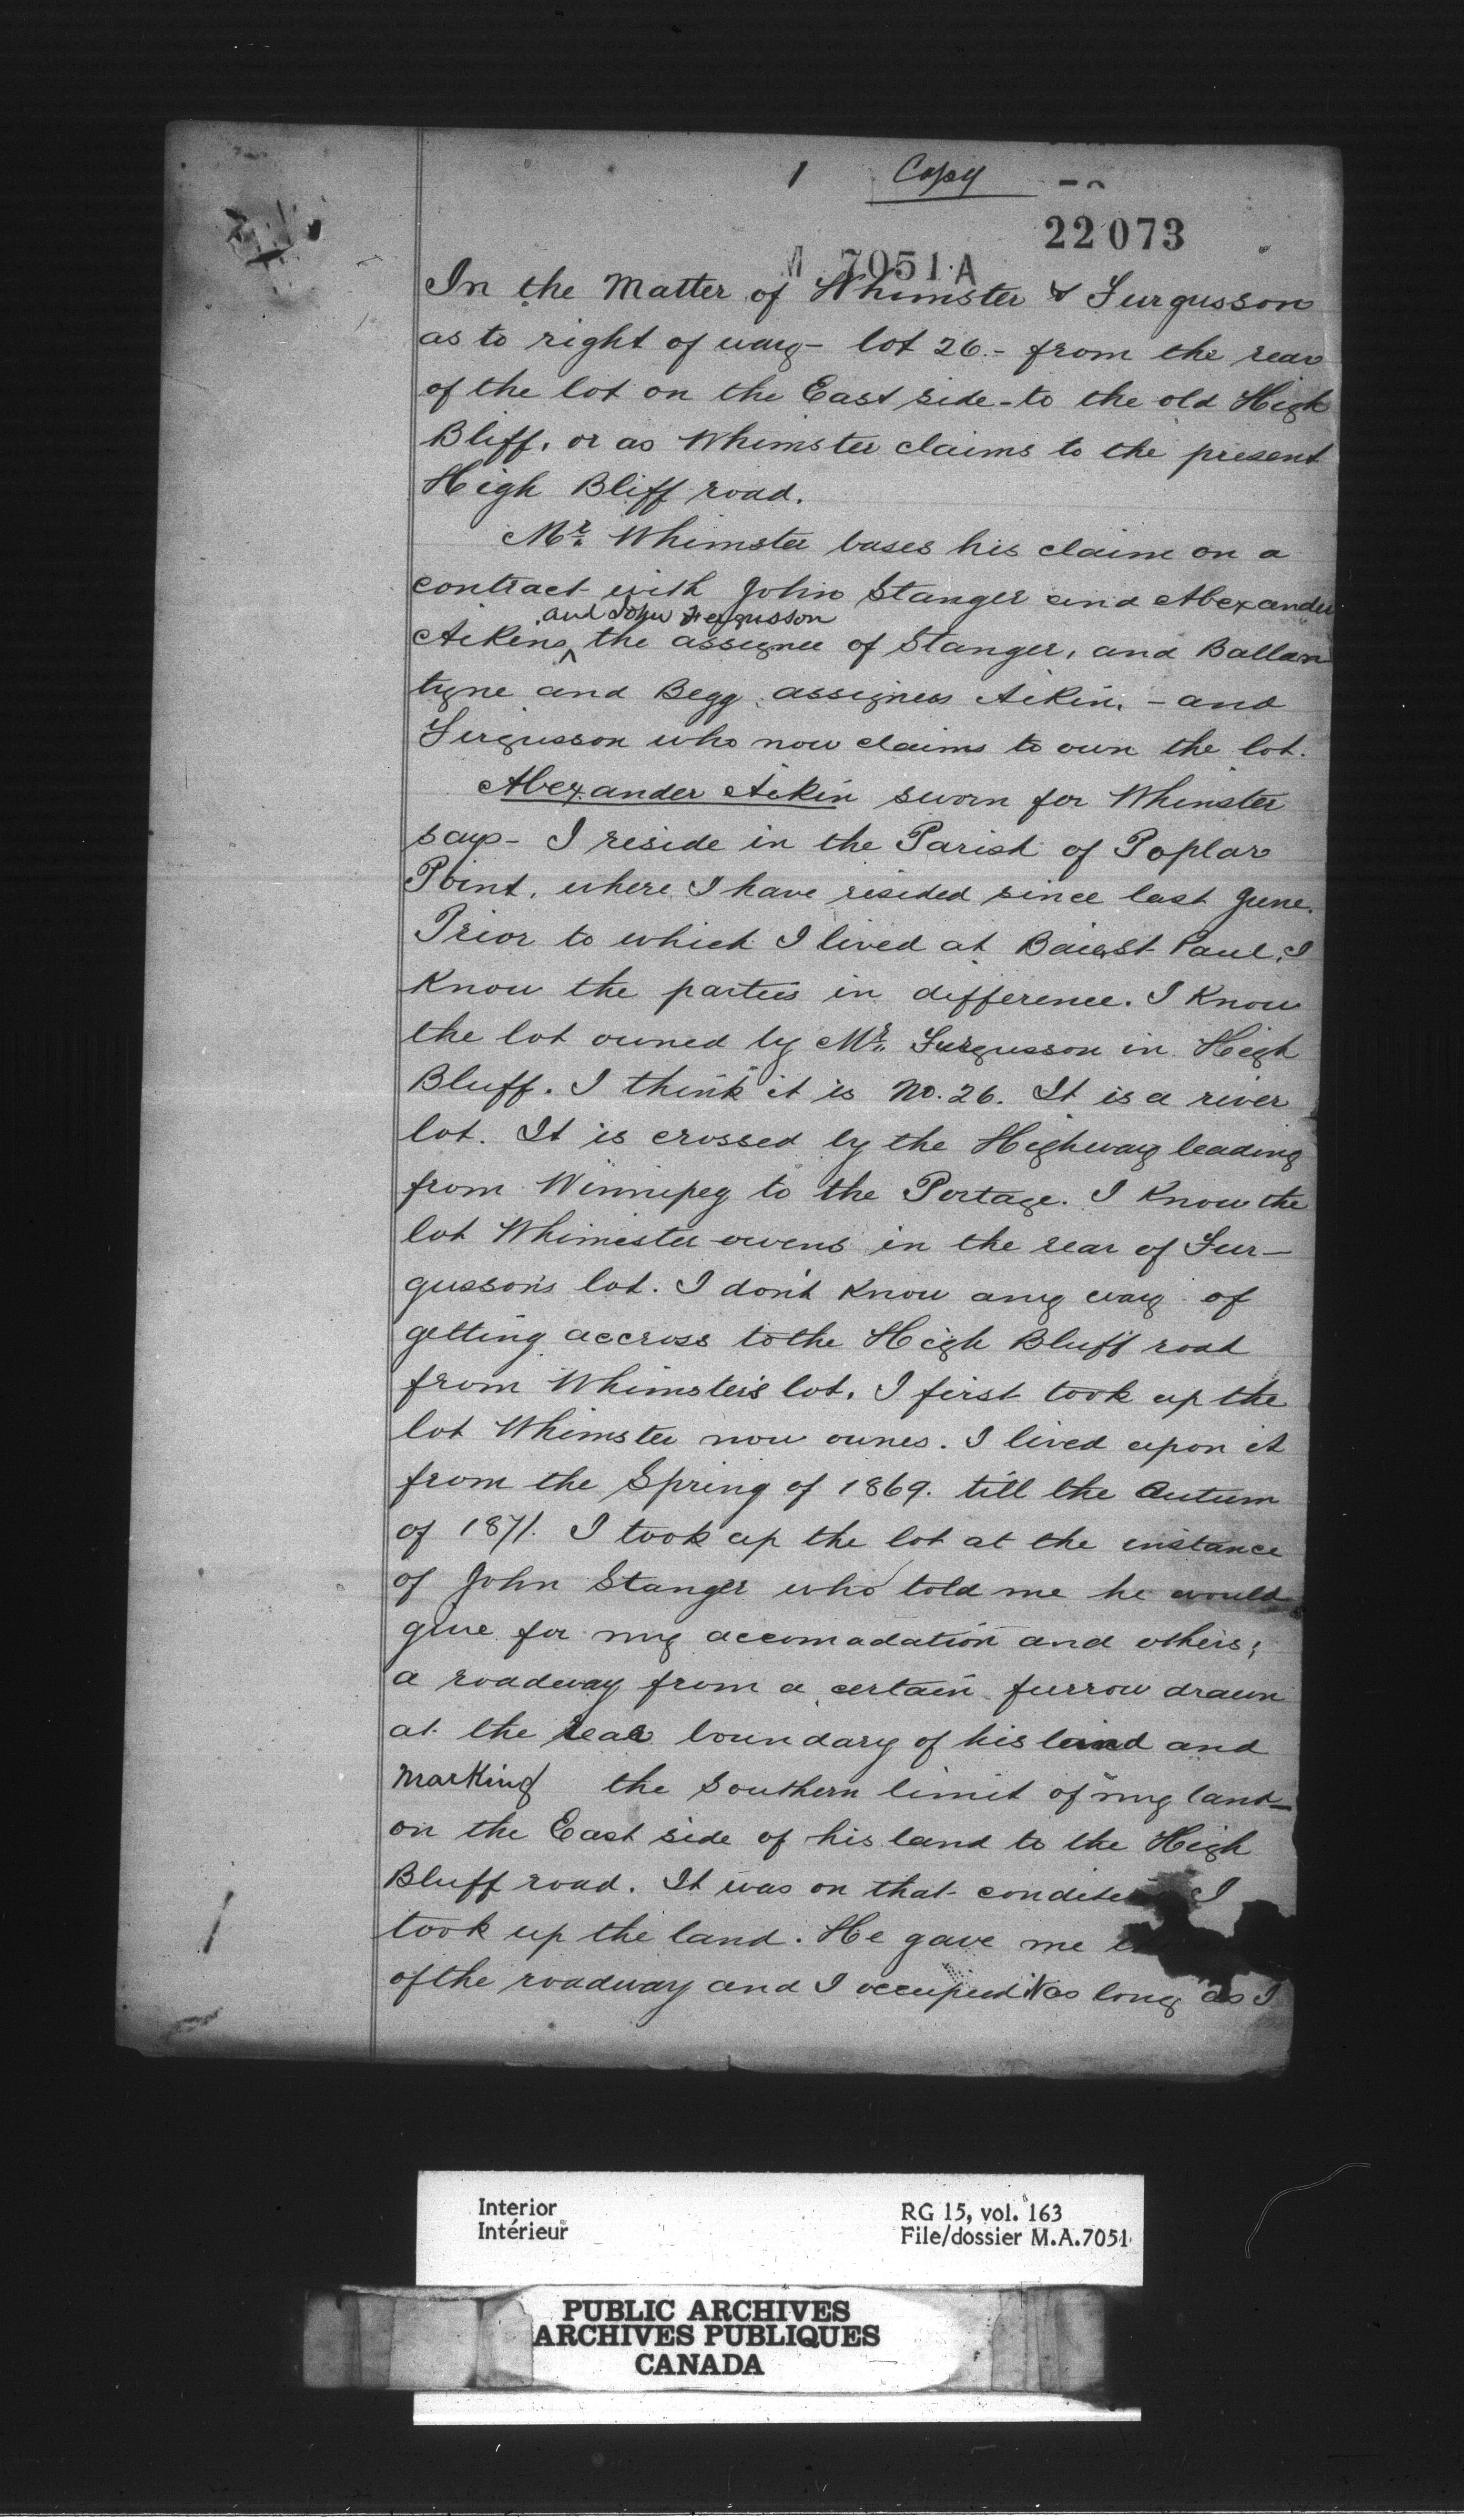 1 Copy
22073
M 7051 A
In the Matter of Whimster & Furgusson
as to right of way - lot 26 - from the rear
of the lot on the East side - to the old High
Bliff, or as Whimster claims to the present
High Bliff road.
Mr. Whimster bases his claim on a
contract with John Stanger and Alexander
and John Fergusson
Aikens, the assignee of Stanger, and Ballan
tyne and Begg, assignees Aikin, - and
Firgusson who now claims to own the lot.
Alexander Aikin sworn for Whimster
says - I reside in the Parish of Poplar
Point, where I have resided since last June.
Prior to which I lived at Baie St Paul, I
Know the parties in difference. I Know
the lot owned by Mr. Furgusson in High
Bluff. I think it is No. 26. It is a river
lot. It is crossed by the Highway leading
from Winnipeg to the Portage. I Know the
lot Whimester owens in the rear of Fur-
gusson's lot. I don't Know any way of
getting accross to the High Bluff road
from Whimster's lot. I first took up the
lot Whimster now ownes. I lived upon it
from the Spring of 1869. till the Autum
of 1871. I took up the lot at the instance
of John Stanger who told me he would
give for my accomadation and others;
a roadway from a certain furrow drawn
at the rear boundary of his land and
Marking the Southern limit of my land -
on the East side of his land to the High
Bluff road. It was on that I
took up the land. He gave me
of the roadway and I occupied it as long as I
Interior
Intérieur
RG 15, vol. 163
File/dossier M.A.7051
PUBLIC ARCHIVES
ARCHIVES PUBLIQUES
CANADA